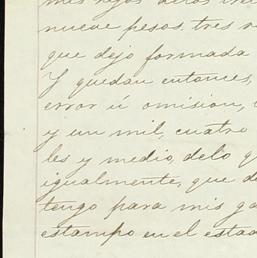 mis hijos
nueve pesos, tres
que dejo formada
Y quedan entonces,
error ú omision,
y un mil, cuatro
les y medio, de lo q
igualmente, que de
tengo para mis ga
estampo en el estad